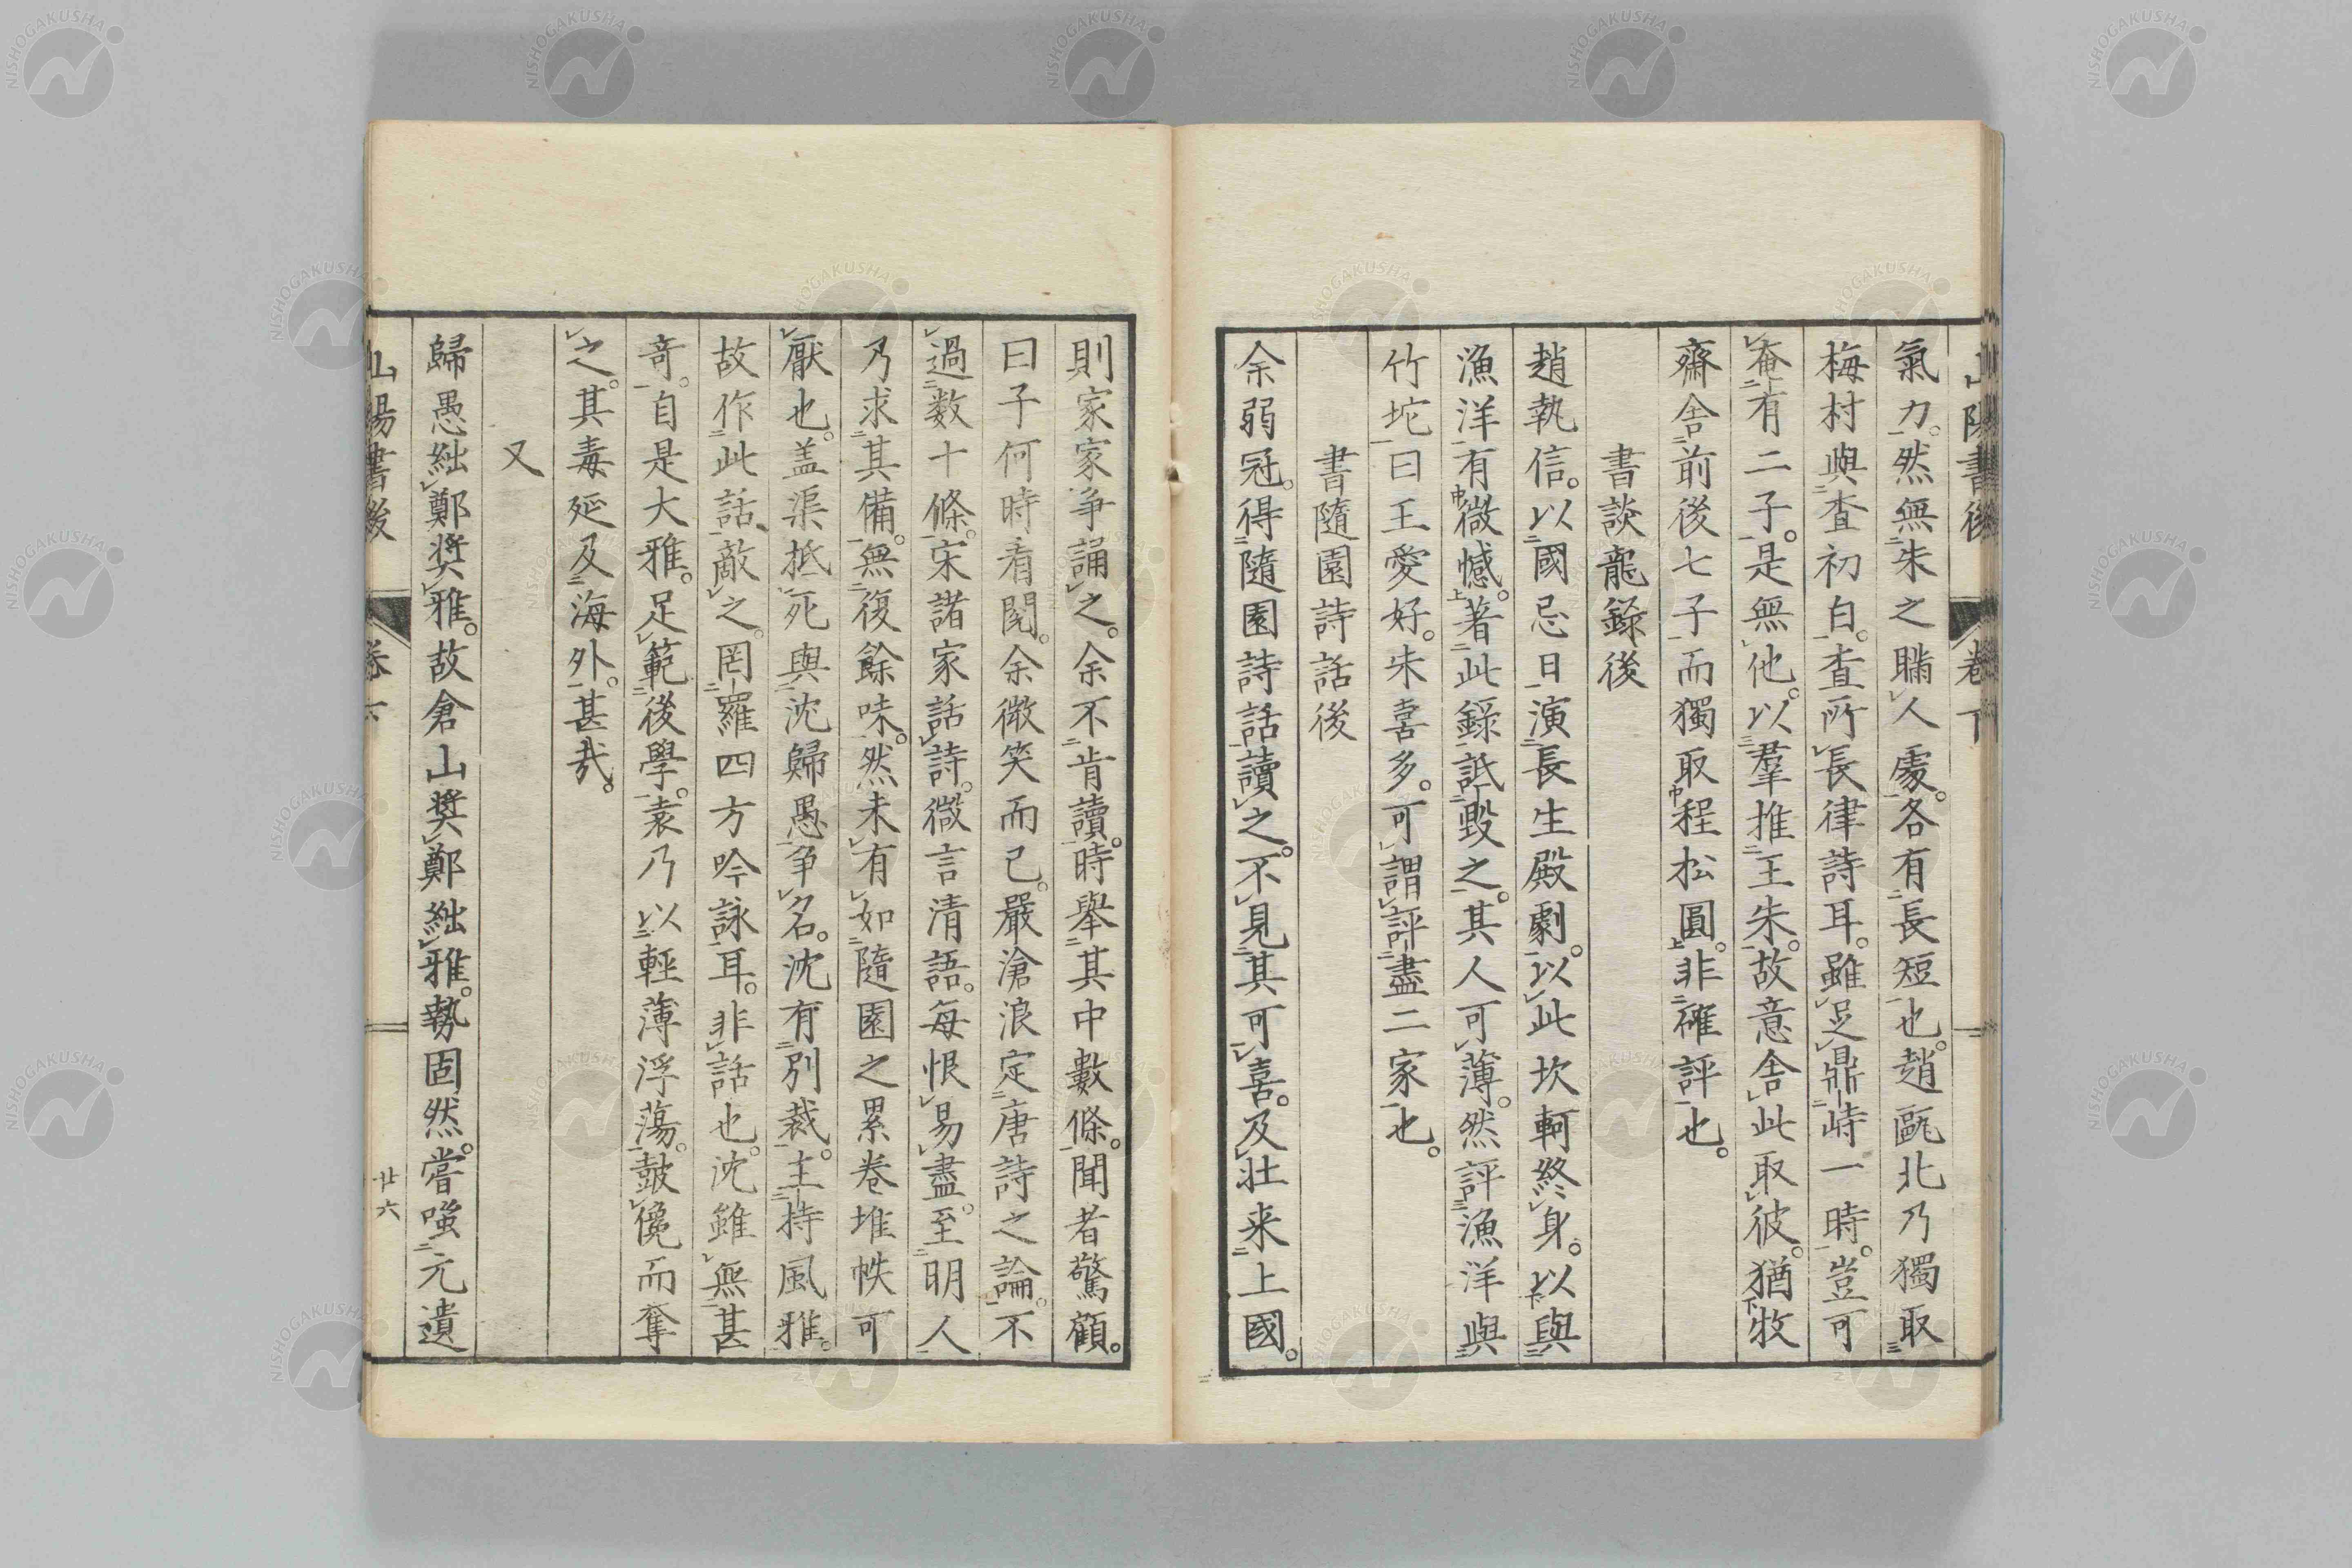 山陽書後 卷下
氣力。然無朱之瞞人處。各有長短也。趙甌北乃獨取
梅村與査初白。査所長律詩耳。雖足鼎峙一時。豈可
奄有二子。是無他。以羣推王朱。故意舎此取彼。猶牧
齋舎前後七子而獨取程松圓。非確評也。
書談龍録後
趙執信。以國忌日演長生殿劇。以此坎軻終身。以與
漁洋有微憾。著此録詆毀之。其人可薄。然評漁洋與
竹坨曰王愛好。朱喜多。可謂評盡二家也。
書隨園詩話後
余弱冠。得隨園詩話讀之。不見其可喜。及壯来上國。
則家家爭誦之。余不肯讀。時舉其中數條。聞者驚顧。
曰子何時看閲。余微笑而已。嚴滄浪定唐詩之論。不
過数十條。宋諸家話詩。微言清語。每恨易盡。至明人
乃求其備。無復餘味。然未有如隨園之累卷堆帙可
厭也。盖渠抵死與沈歸愚爭名。沈有別裁。主持風雅。
故作此話敵之。罔羅四方吟詠耳。非話也。沈雖無甚
奇。自是大雅。足範後學。袁乃以輕薄浮蕩。鼓儳而奪
之。其毒延及海外。甚哉。
又
歸愚絀鄭奨雅。故倉山奨鄭絀雅。勢固然。嘗嗤元遺
山陽書後 卷下 廿六
NISHOGAKUSHA